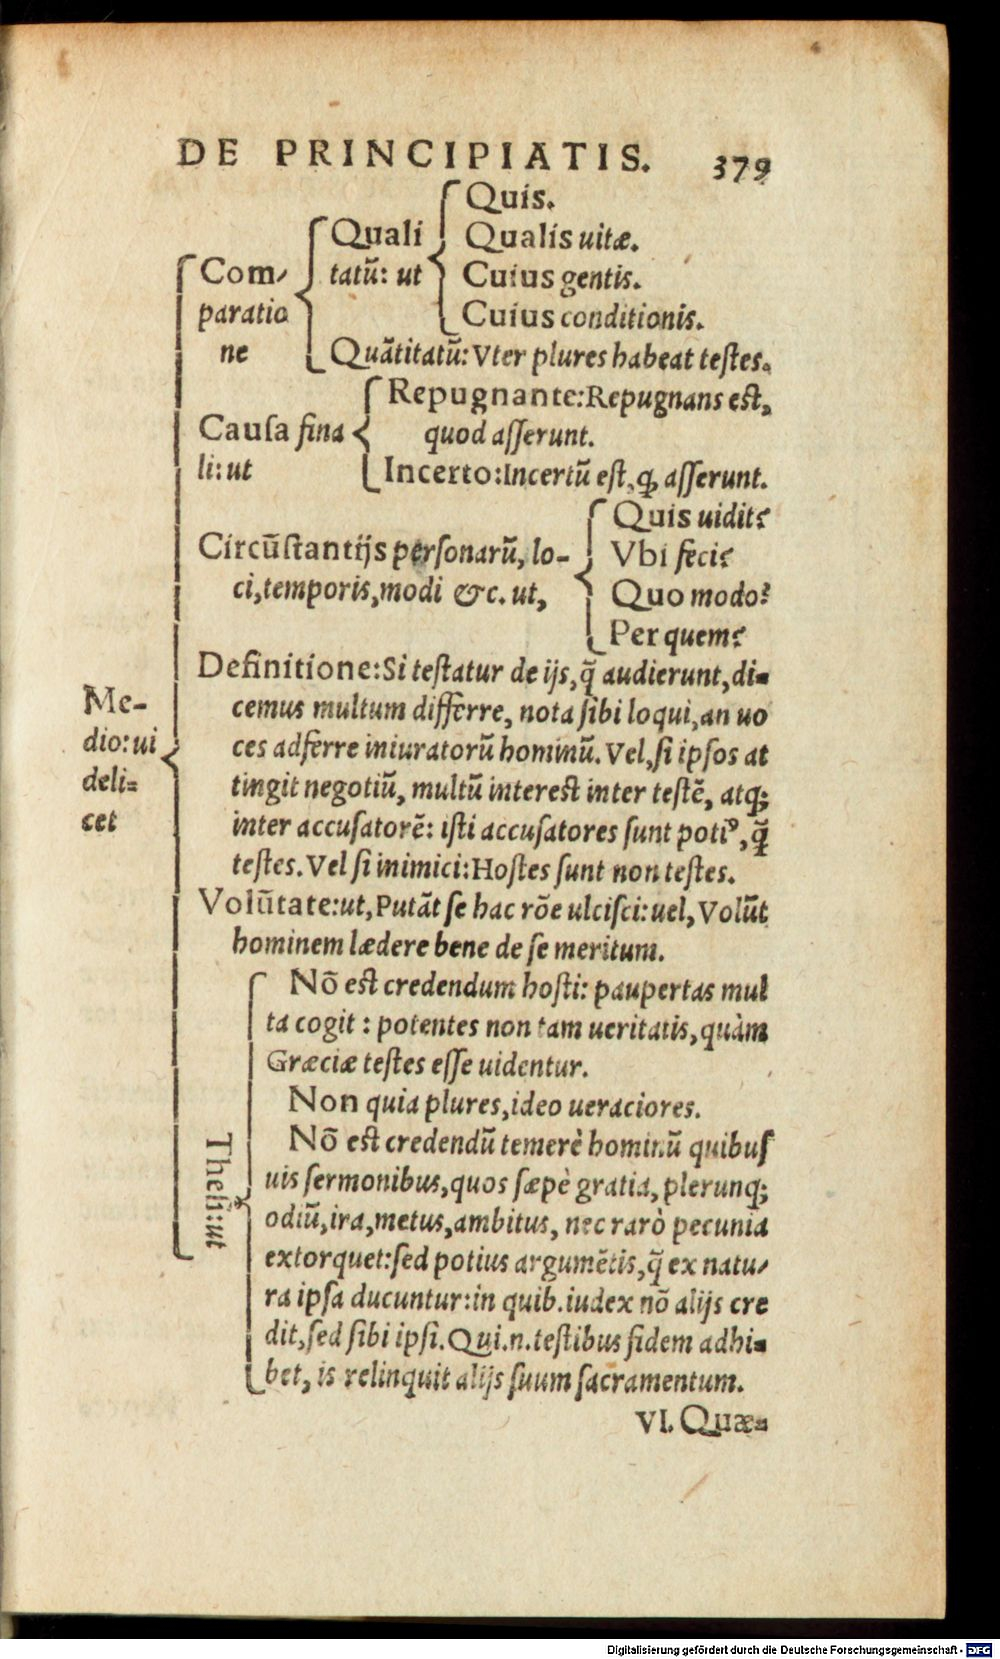 DE PRINCIPIATIS. 379
Medio: ui
deli=
cet
Com⸗
paratio
ne
Quali
tatũ: ut
Quis.
Qualis uitæ.
Cuius gentis.
Cuius conditionis.
Quãtitatũ: Vter plures habeat teſtes.
Cauſa fina
li: ut
Repugnante: Repugnans eſt,
quod aſſerunt.
Incerto: Incertũ eſt, ꝙ aſſerunt.
Circũſtantijs perſonarũ, lo-
ci, temporis, modi &c. ut,
Quis uidit?
Vbi feci?
Quo modo?
Per quem?
Definitione: Si teſtatur de ijs, q̃ audierunt, di=
cemus multum differre, nota ſibi loqui, an uo
ces adferre iniuratorũ hominũ. Vel, ſi ipſos at
tingit negotiũ, multũ intereſt inter teſtẽ, atq;
inter accuſatorẽ: iſti accuſatores ſunt potiꝰ, ꝗ̃
teſtes. Vel ſi inimici: Hoſtes ſunt non teſtes.
Volũtate: ut, Putãt ſe hac rõe ulciſci: uel, Volũt
hominem lædere bene de ſe meritum.
Theſi: ut
Nõ eſt credendum hoſti: paupertas mul
ta cogit: potentes non tam ueritatis, quàm
Græciæ teſtes eſſe uidentur.
Non quia plures, ideo ueraciores.
Nõ eſt credendũ temerè hominũ quibuſ
uis ſermonibus, quos ſæpè gratia, plerunq;
odiũ, ira, metus, ambitus, nec rarò pecunia
extorquet: ſed potius argumẽtis, q̃ ex natu⸗
ra ipſa ducuntur: in quib. iudex nõ alijs cre
dit, ſed ſibi ipſi. Qui.n. teſtibus fidem adhi=
bet, is relinquit alijs ſuum ſacramentum.
VI. Quæ=
Digitalisierung gefördert durch die Deutsche Forschungsgemeinschaft - DFG